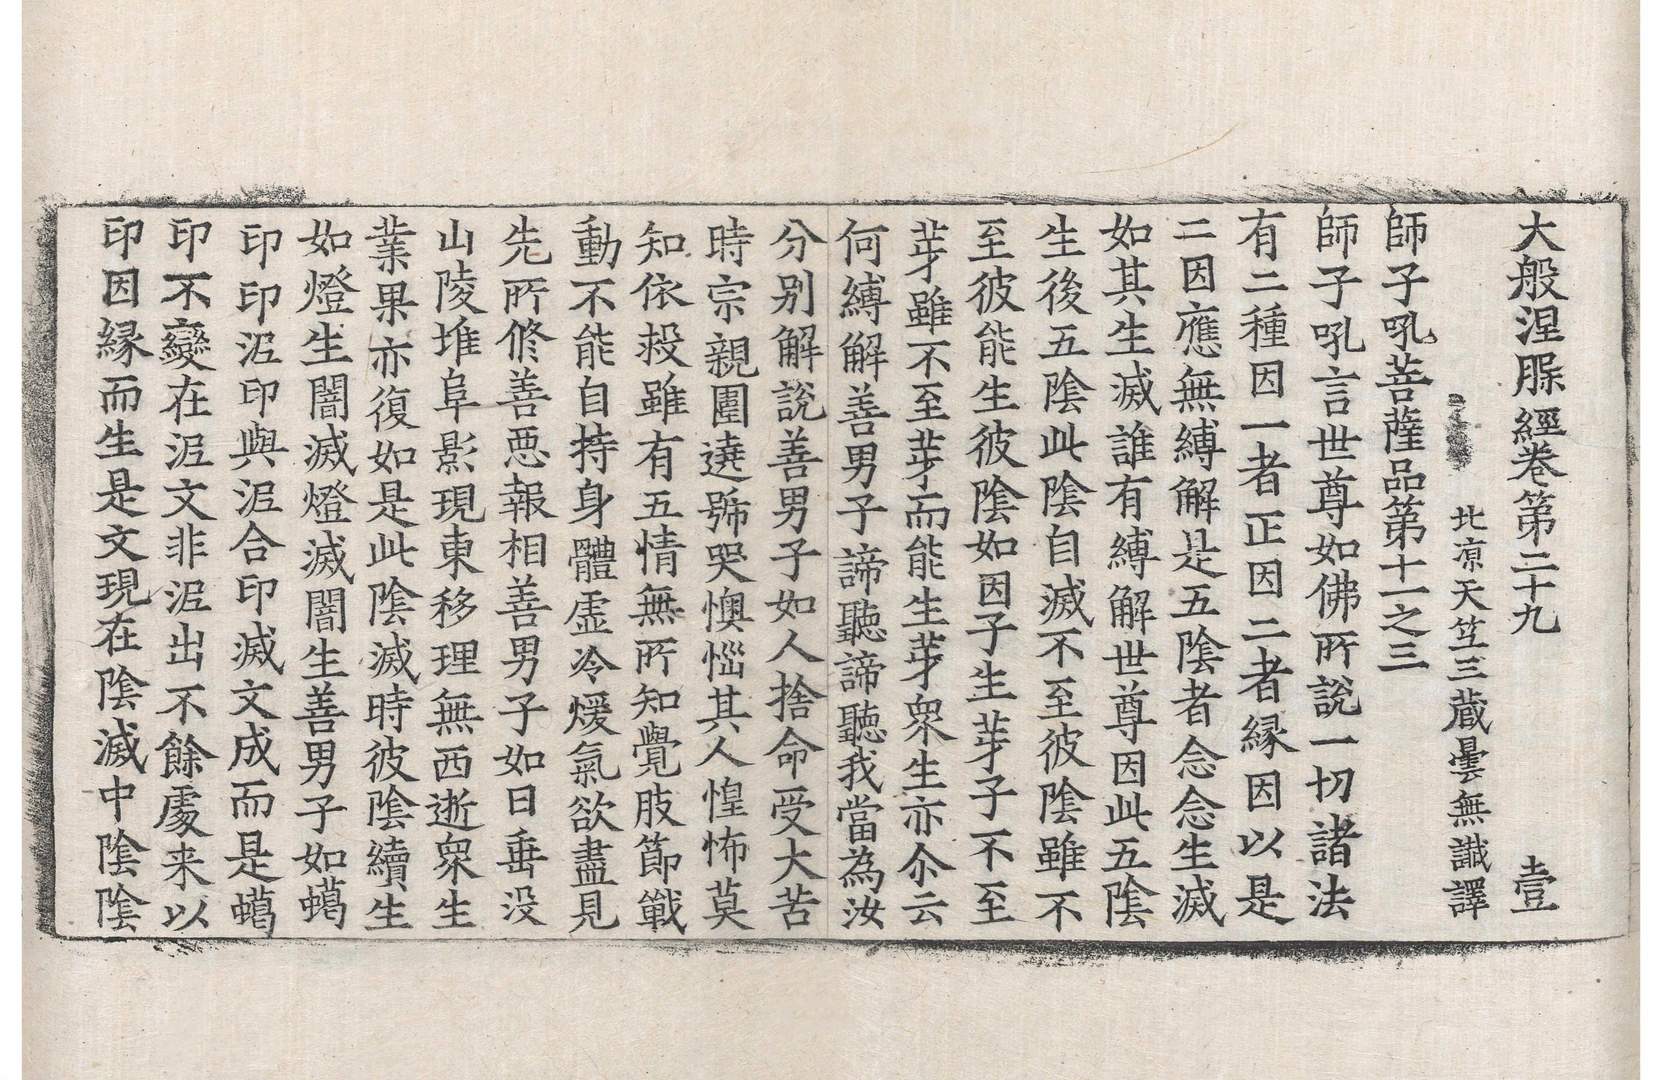 大般涅槃經卷第二十九 壹
北凉天竺三蔵曇無讖譯
師子吼菩薩品第十一之三
師子吼言世尊如佛所說一切諸法
有二種因一者正因二者縁因以是
二因應無縛解是五陰者念念生滅
如其生滅誰有縛解世尊因此五陰
生後五陰此陰自滅不至彼陰雖不
至彼能生彼陰如因子生芽子不至
芽雖不至芽而能生芽衆生亦尒云
何縛解善男子諦聽諦聽我當為汝
分别解說善男子如人捨命受大苦
時宗親圍遶號哭懊惱其人惶怖莫
知依救雖有五情無所知覺肢節戰
動不能自持身體虛冷煖氣欲盡見
先所修善惡報相善男子如日垂没
山陵堆阜影現東移理無西逝衆生
業果亦復如是此陰滅時彼陰續生
如燈生闇滅燈滅闇生善男子如蠟
印印泥印與泥合印滅文成而是蠟
印不變在泥文非泥出不餘處来以
印因縁而生是文現在陰滅中陰陰